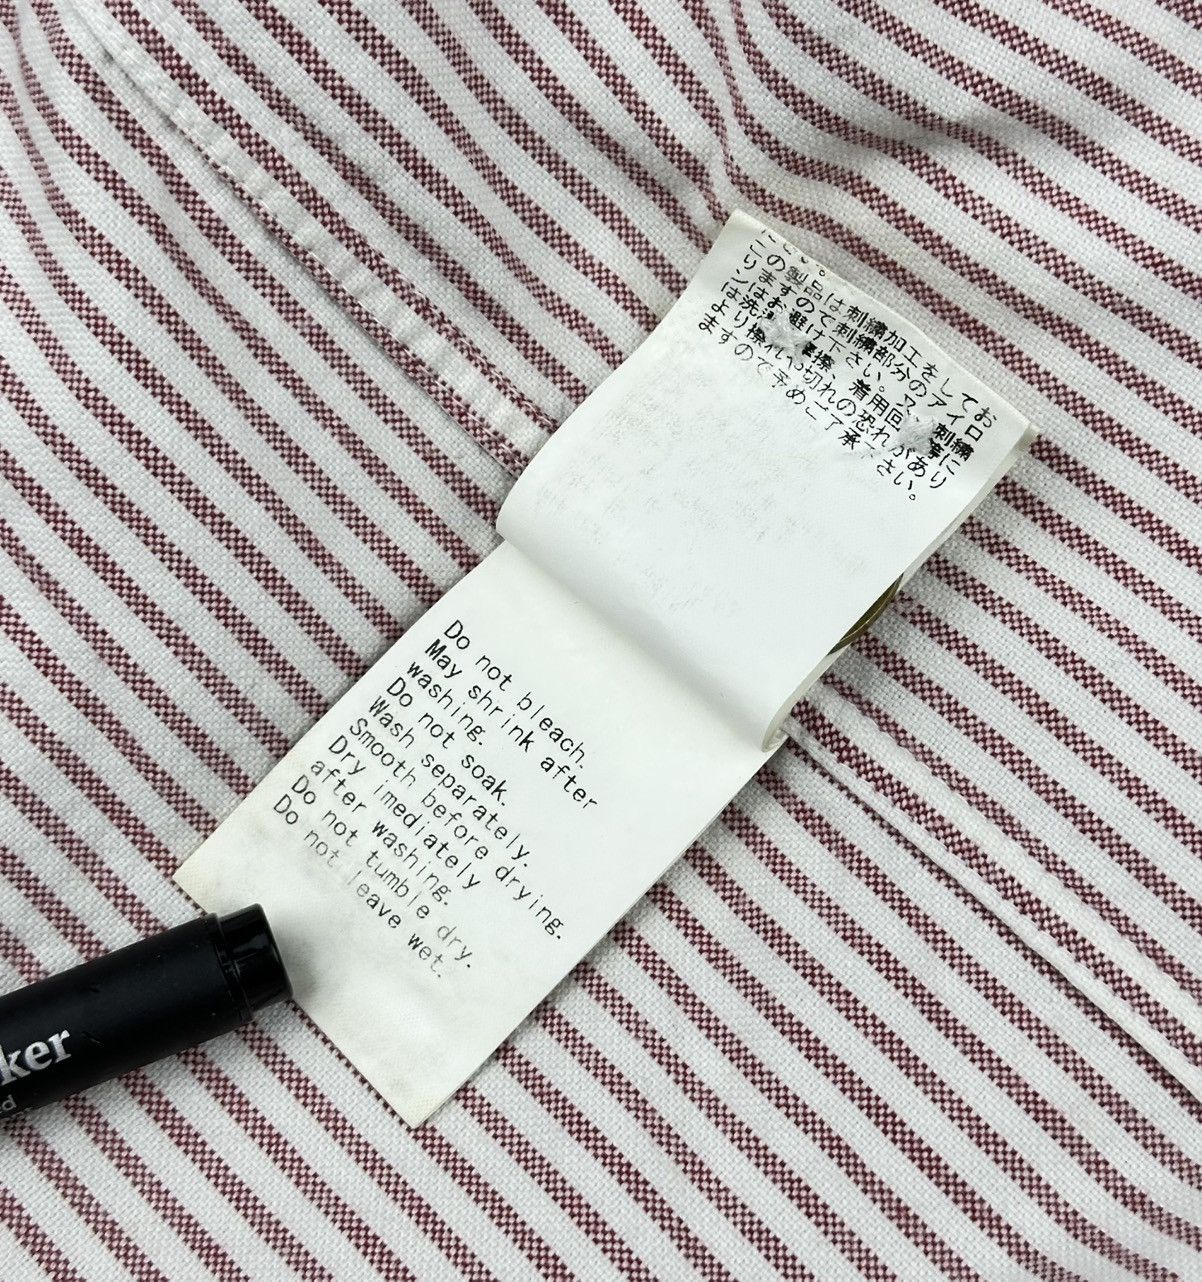 この製品は刺繍加工をしてお
りますので刺繍部分のアイロ
ンはお避け下さい。 刺繍
は洗 擦、着用回 等に
より擦れや切れの恐れがあり
ますので予めご了承 さい。
Do not bleach.
May shrink after
washing.
Do not soak.
Wash separately.
Smooth before drying.
Dry imediately
after washing.
Do not tumble dry.
Do not leave wet.
ker